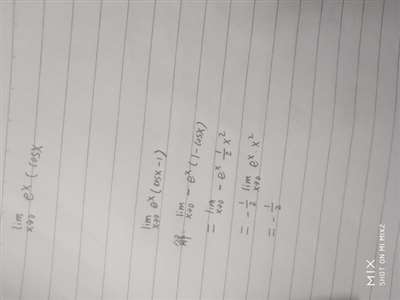 lim x→0 e^x (cosx
lim x→0 e^x (cosx-1)
解 lim x→0 -e^x (1-cosx)
= lim x→0 -e^x 1/2 x^2
= -1/2 lim x→0 e^x x^2
= -1/2
MIX
SHOT ON MI MIX2